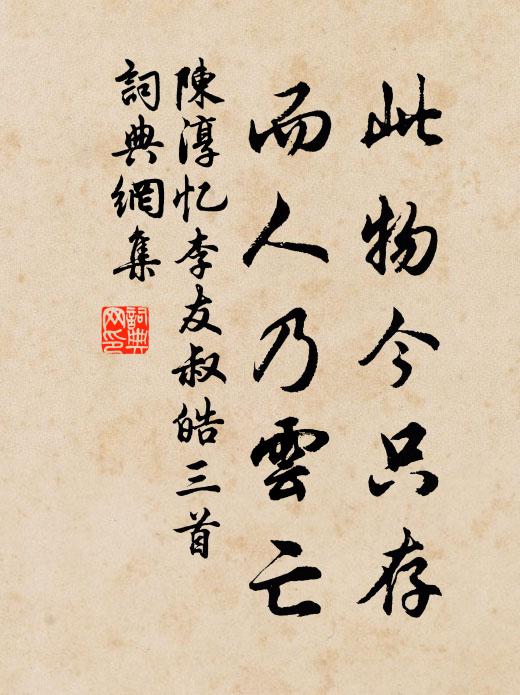 此物今只存
而人乃雲亡
陳淳忆李友叔皓三首
詞典網集
詞典網印